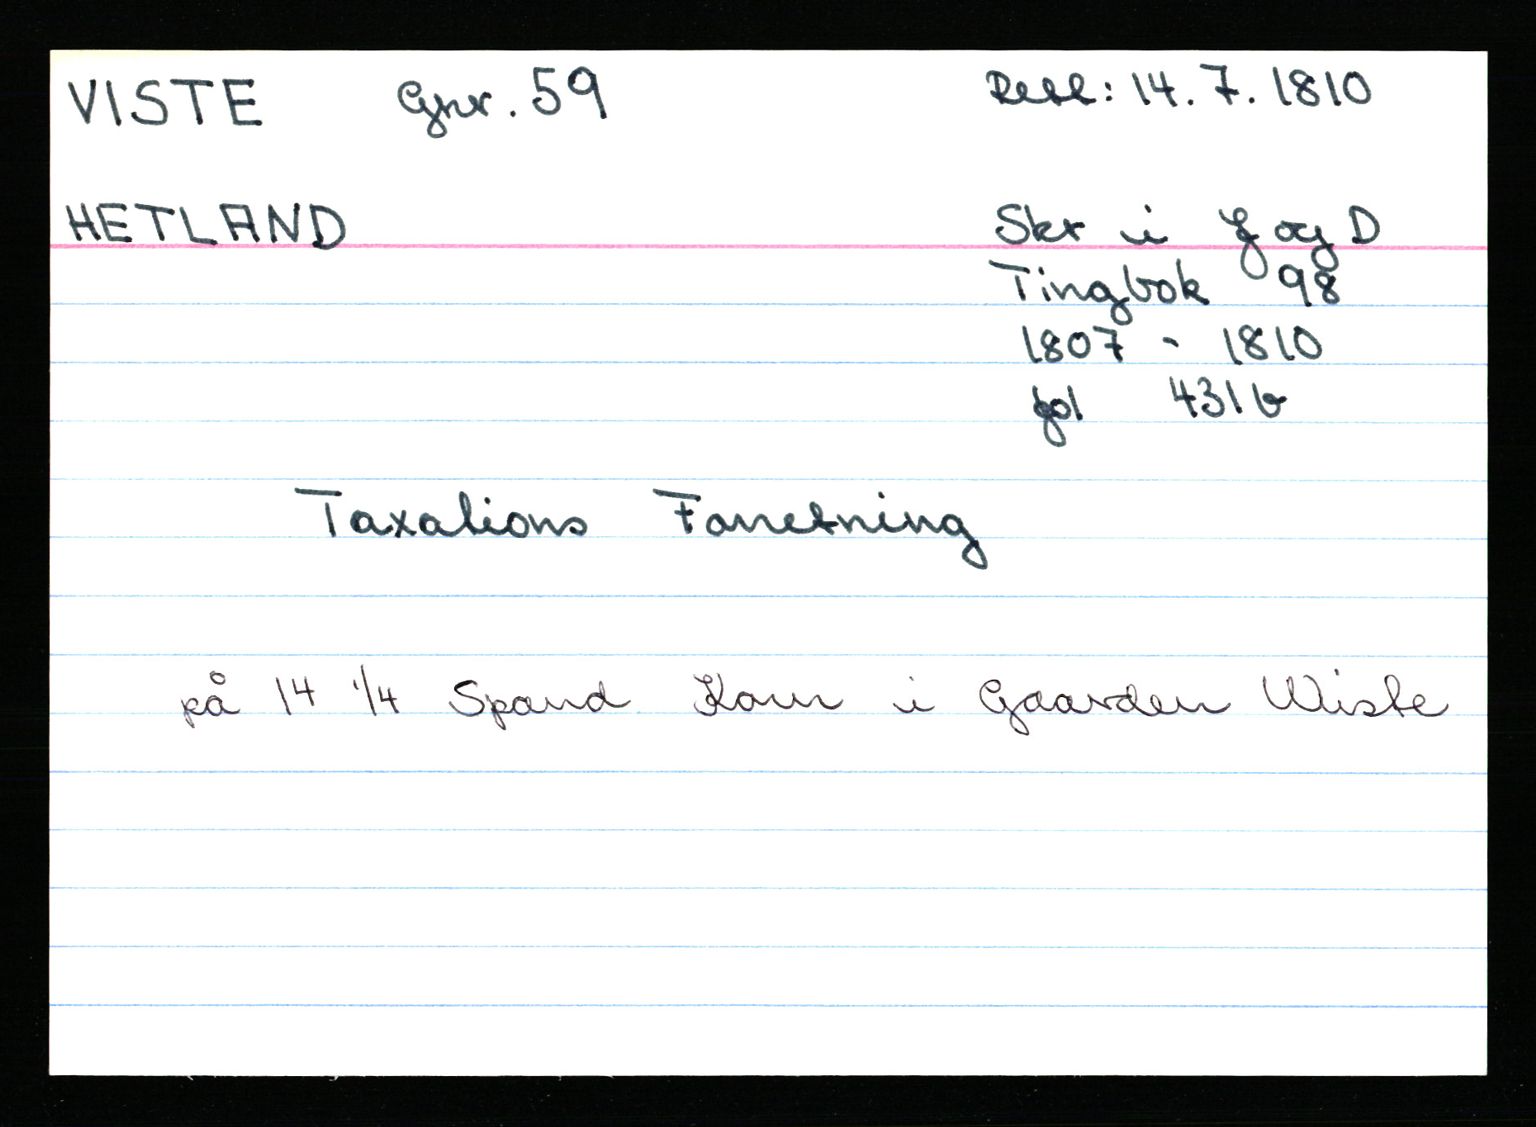 VISTE Gnr. 59 Retl: 14. 7. 1810
HETLAND Skr i J og D
Tingbok 98
1807 - 1810
fol 431 b
Taxations Forretning
på 14 1/4 Spand Korn i Gaarden Wiste